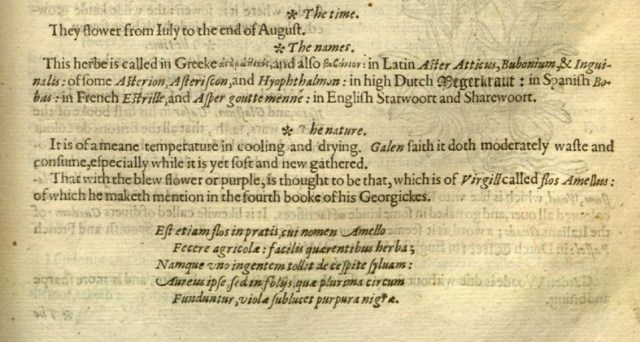 ❧ The time.
They flower from Iuly to the end of August.
❧ The names.
This herbe is called in Greeke and also in Latin Aster Atticus, Bubonium, & Ingui-
nalis: of some Asterion, Asteriscon, and Hyophthalmon: in high Dutch Megerkraut: in Spanish Bo-
bas: in French Estrille, and Asper goutte menne: in English Starwoort and Sharewoort.
❧ he nature.
It is of a meane temperature in cooling and drying. Galen saith it doth moderately waste and
consume, especially while it is yet soft and new gathered.
That with the blew flower or purple, is thought to be that, which is of Virgill called flos Amellus:
of which he maketh mention in the fourth booke of his Georgickes.
Est etiam flos in pratis, cui nomen Amello
Fecere agricolæ: facilis quærentibus herba;
Namque vno ingentem tollit de cespite syluam:
Aureus ipse, sed in folijs, quæ plurima circum
Funduntur, violæ sublucet purpura nigræ.